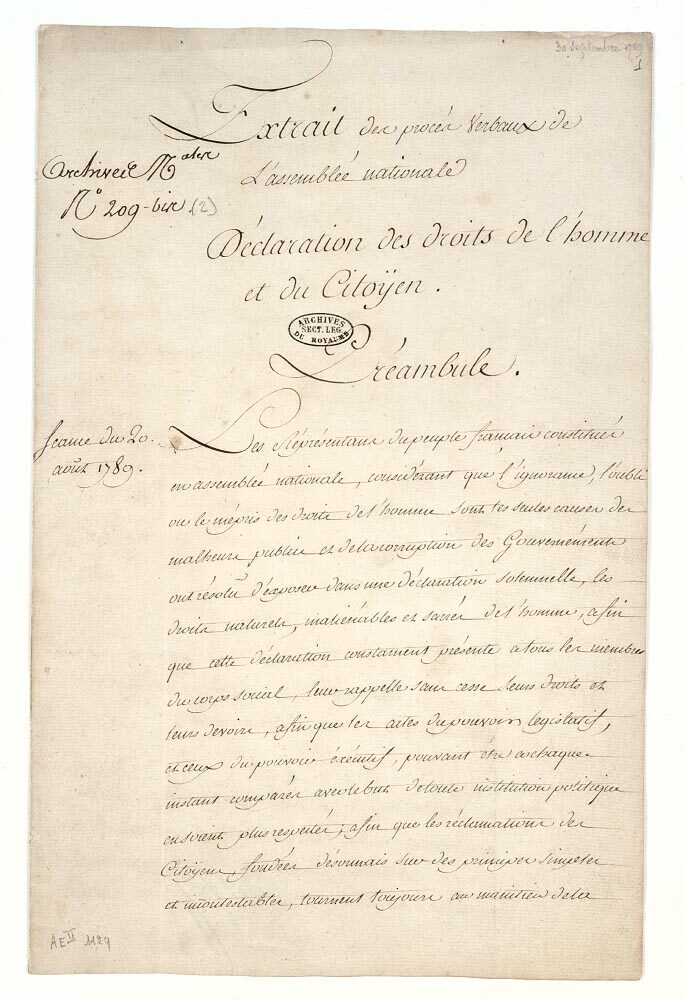 30 Septembre 1789
1
Extrait des procés Verbaux de
L'assemblée nationale
Archives Nales
No 209-bis (2)
Déclaration des droits de l'homme
et du Citoÿen.
ARCHIVES
SECT. LEG.
DU ROYAUME
Préambule.
Seance du 20.
août 1789.
Les Réprésentans du peuple francais constitués
en assemblée nationale, considérant que l'ignorance, l'oubli
ou le mépris des droits de l'homme sont les seules causes des
malheurs publics et de la corruption des Gouvernéments
ont résolu d'exposer dans une déclaration solemnelle, les
droits naturels, inaliénables et sacrés de l'homme, afin
que cette déclaration constament présente a tous les membres
du corps social, leur rappelle sans cesse leurs droits et
leurs devoirs, afin que les actes du pouvoir legislatif,
et ceux du pouvoir éxécutif, pouvant etre a chaque
instant comparés avec le but de toute institution politique
en soient plus respectés; afin que les réclamations des
Citoyens, fondées désormais sur des principes simples
et incontestables, tournent toujours au maintien de la
AE II 1129